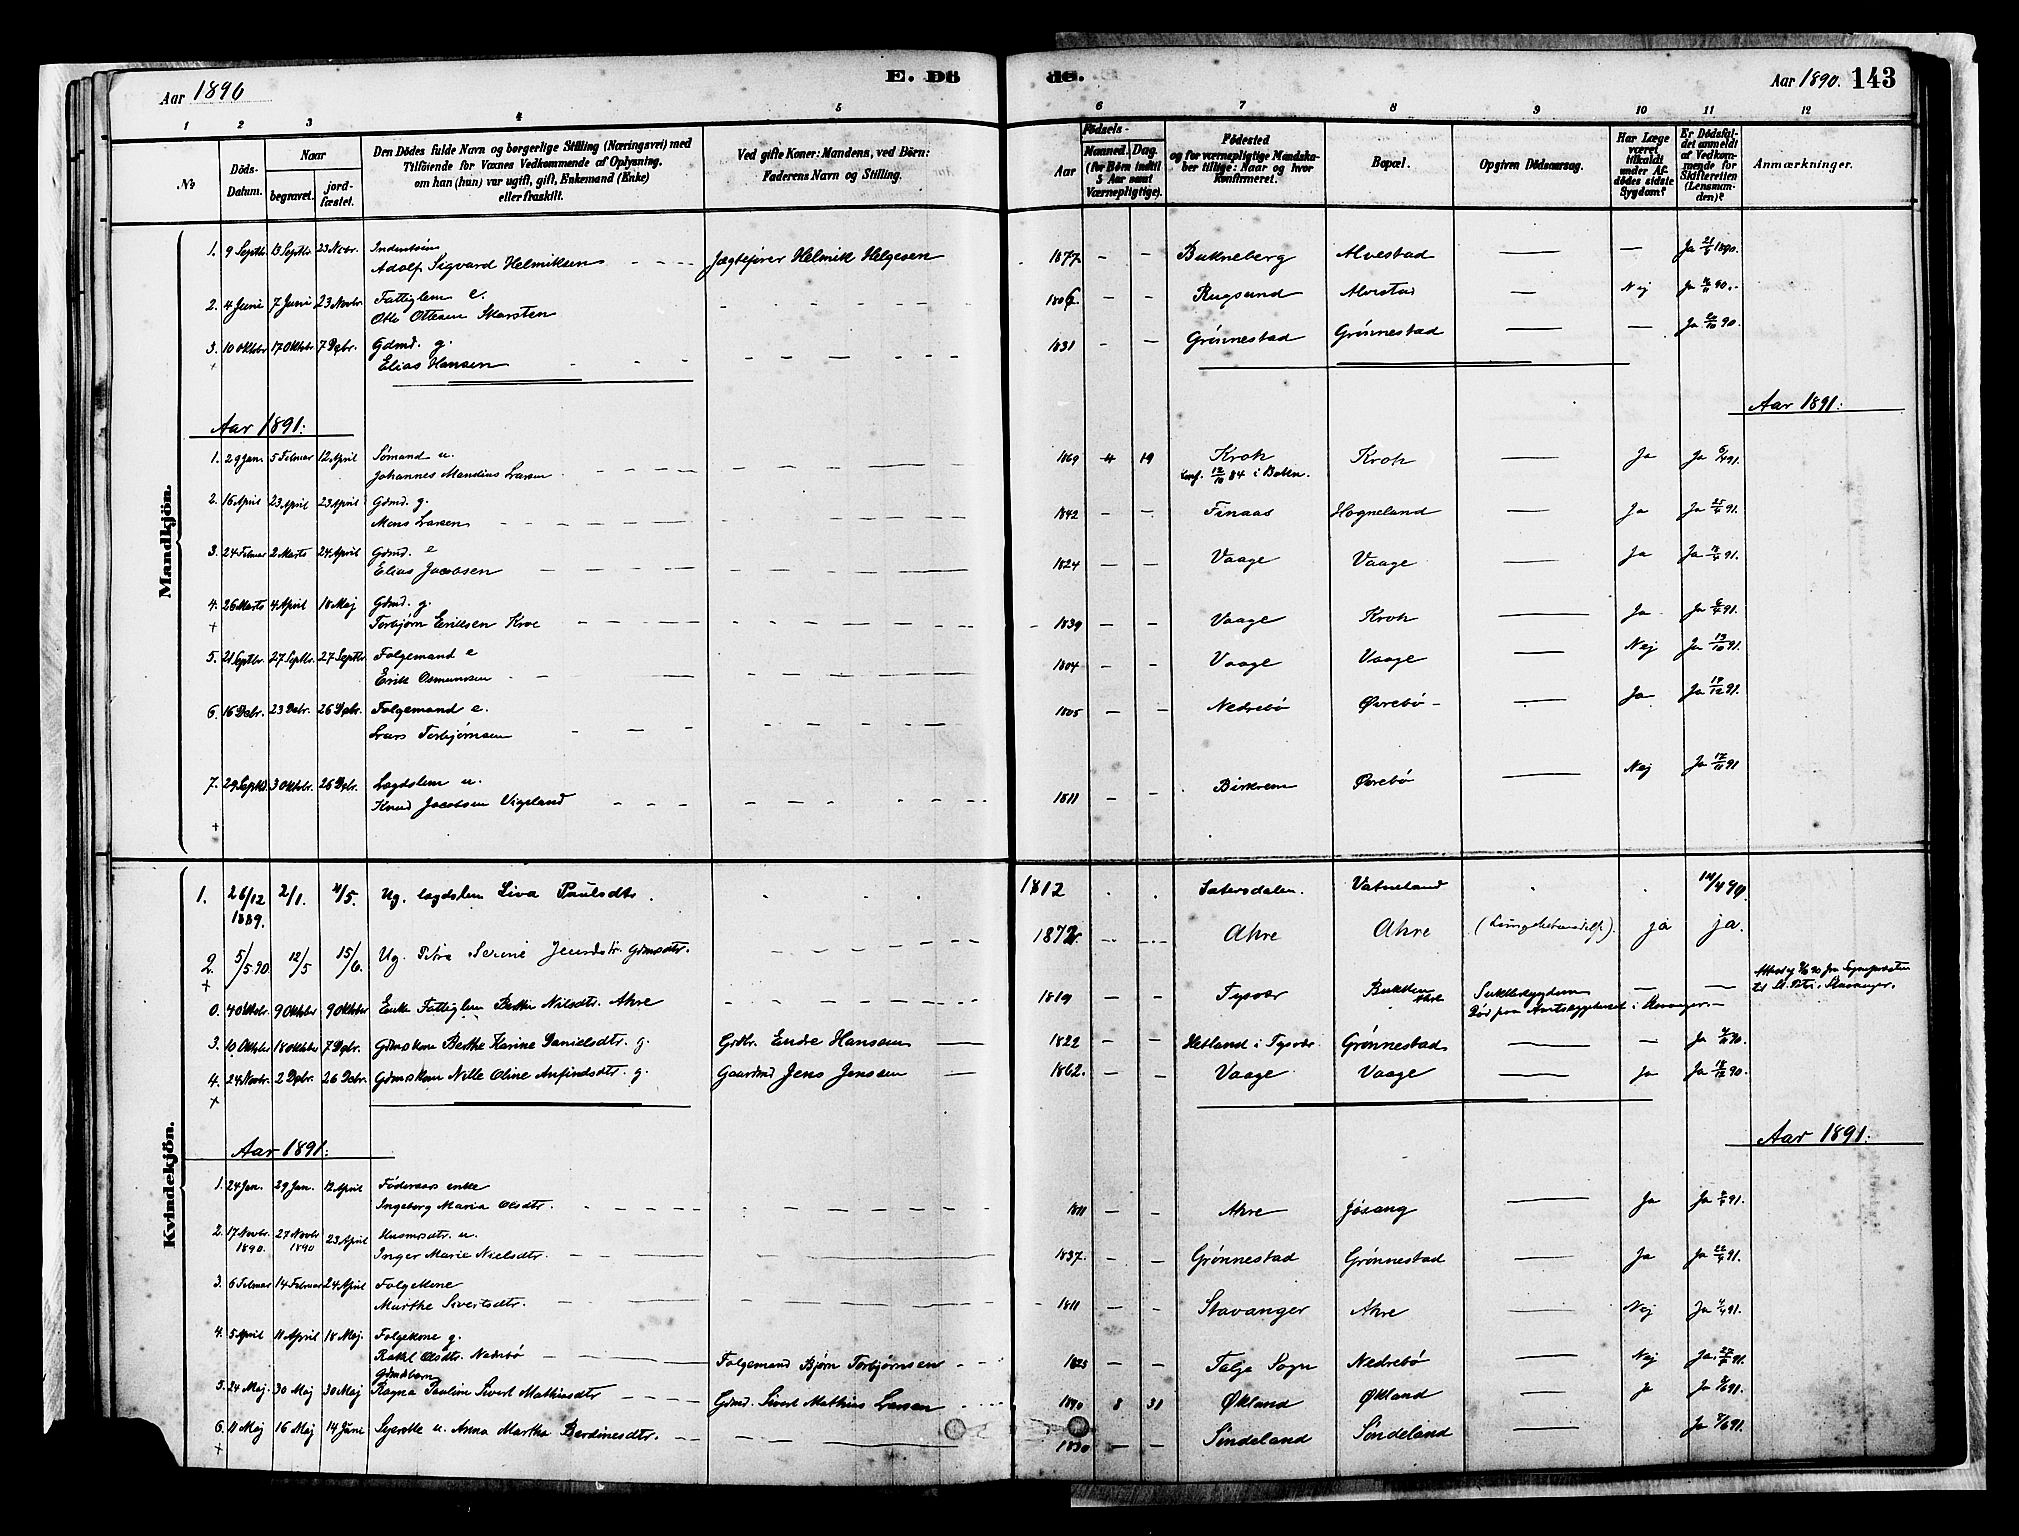 Aar 1890
E. Dö
de.
Aar 1890. 143
1 2 3 4 5 6 7 8 9 10 11 12
No
Döds-Datum.
Naar
begravet.
jord-fæstet.
Den Dödes fulde Navn og borgerlige Stilling (Næringsvei) med
Tilföiende for Voxnes Vedkommende af Oplysning,
om han (hun) var ugift, gift, Enkemand (Enke)
eller fraskilt.
Ved gifte Koner: Mandens, ved Börn:
Faderens Navn og Stilling.
Födsels-
Aar
Maaned. Dag.
(for Börn indtil
5 Aar samt
Værnepligtige).
Födested
og for værnepligtige Mandska-
ber tillige: Naar og hvor
Konfirmeret.
Bopæl.
Opgiven Dödsaarsag.
Har Læge
været
tilkaldt
under Af-
dödes sidste
Sygdom?
Er Dödsfal-
det anmeldt
af Vedkom-
mende for
Skifteretten
(Lensman-
den)?
Anmærkninger.
Mandkjön.
1. 9 Septbr 13 Septbr 23 Nvbr.
Adolf Sigvard Helmiksen Jægteier Helmik Helgesen 1877 Bukneberg Alvestad Ja 1890.
2. 4 Juni 7 Juni 23 Novbr. Fattiglem e.
Otto Ottesen Skarsten 1806 Rugsund Alvestad Nej Ja 90.
3. 10 Oktbr 17 Oktbr 7 Dcbr. Gdmd. g.
+ Elias Hansen 1831 Grönnestad Grönnestad Ja 90.
Aar 1891: Aar 1891:
1. 29 Jan. 5 Februar 12 April Sömand u.
Johannes Mandius Larsen 1869 4 19 Kroh Kroh Ja Ja 91.
Conf. 12/10 84 i Bokn.
2. 16 April 23 April 23 April Gdmd. g.
Mons Larsen 1842 Finaas Hogneland Ja Ja 91.
3. 24 Februar 2 Marts 24 April Gdmd. e
Elias Jacobsen 1824 Vaage Vaage Ja Ja 91.
4. 26 Marts 4 April 18 Maj Gdmd. g.
+ Torbjörn Eriksen Kroe 1839 Vaage Kroh Ja Ja 91.
5. 21 Septbr. 27 Septbr 27 Septbr Folgemand e
Erik Osmundsen 1804 Vaage Vaage Nej Ja 91.
6. 16 Dcbr. 23 Dcbr. 26 Dcbr. Folgemand e.
Lars Torbjörnsen 1805 Nedrebö Övrebö Ja Ja 91.
7. 29 Septbr. 3 Oktbr. 26 Dcbr. Lægdslem u.
Knud Jacobsen Vigeland 1811 Birkrem Övrebö Nej Ja 91
+
Kvindekjön.
1. 26/12 1889. 2/1. 4/5. Ug. lægdslem Siva Paulsdtr. 1812 Sætersdalen. Vatneland 14/4 90.
2. 5/5 90 12/5 15/6. Ug. Petra Serine Gdmsdtr. 1872. Ahre Ahre ja ja.
+
0. 4 Oktbr. 9 Oktober 9 Oktober Enke Fattiglem Berthe Nilsdtr. Ahre 1819 Tysvær Ahre
Död paa Amtssygehuset i Stavanger.
3. 10 Oktober 18 Oktober 7 Dcbr. Gdmskone Berthe Karine Danielsdtr. g. Grdbr. Endre Hanssen 1822 Hetland i Tysvær Grönnestad Ja 90.
4. 24 Novbr. 2 Dcbr. 26 Dcbr. Gdmskone Nille Oline Anfindsdtr. g. Gaardmd Jens Jenssen 1862. Vaage Vaage Ja Ja 90.
+
Aar 1891: Aar 1891:
1. 24 Jan. 29 Jan. 12 April Föderaads enke
Ingeborg Maria Olsdtr. 1811 Ahre Jösang Ja Ja 91.
2. 17 Novbr. 1890. 27 Novbr 1890 23 April Husmsdtr. u.
Inger Marie Nielsdtr. 1837. Grönnestad Grönnestad Ja Ja 91.
3. 6 Februar 14 Februar 24 April Folgekone
Marthe Sivertsdtr. 1811 Stavanger Ahre Nej Ja 91.
4. 5 April 11 April 18 Maj. Folgekone g.
Rakel Olsdtr. Nedrebö Folgemand Björn Torbjörnsen 1823 Talje Sogn Nedrebö Nej Ja. 91.
Gdmdsbarn
5. 24 Maj. 30 Maj 30 Maj Ragna Pauline Sivert Mathiasdtr Gdmd. Sivert Mathias Larsen 1890 8 31 Ökland Ökland ja Ja 91.
6. 11 Maj 16 Maj 14 Juni u. Anna Martha Berdinesdtr. 1830 Söndeland Söndeland Ja 91.
+